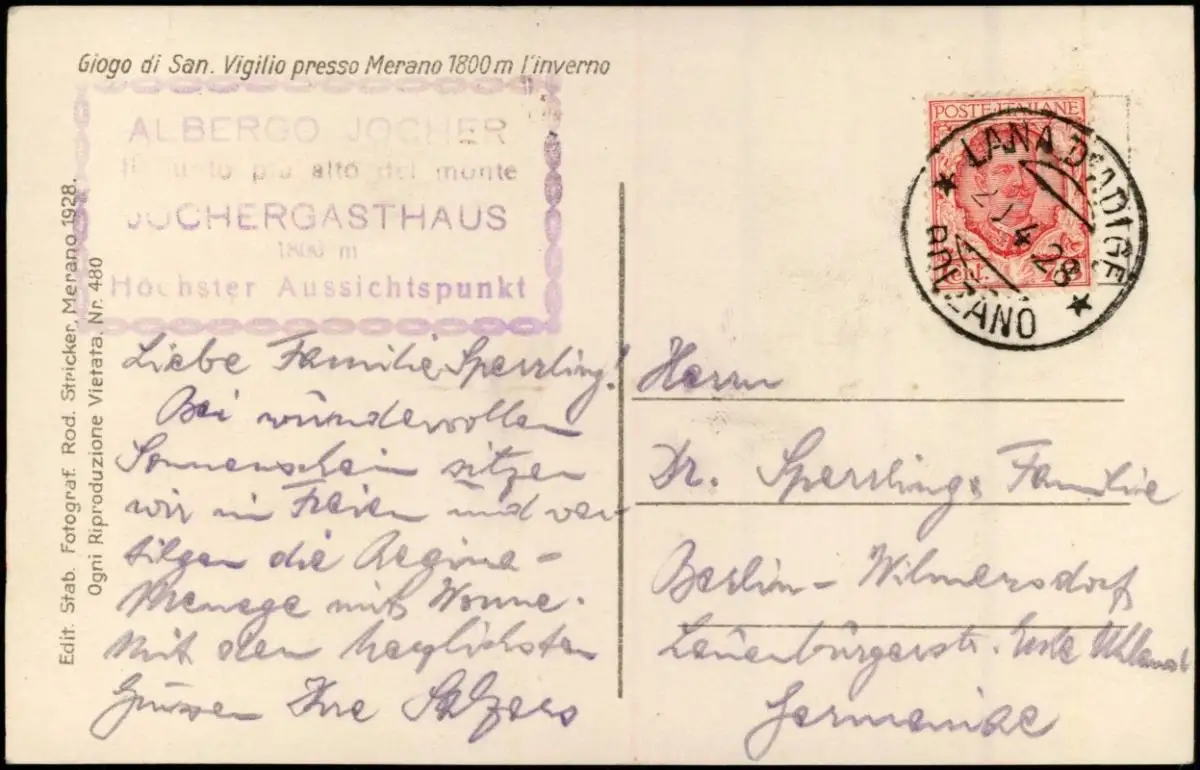 Giogo di San. Vigilio presso Merano 1800 m l'inverno
ALBERGO JOCHER
Il punto più alto del monte
JOCHERGASTHAUS
1800 m
Höchster Aussichtspunkt
Edit. Stab. Fotograf. Rod. Stricker, Merano 1928.
Ogni Riproduzione Vietata. Nr. 480
POSTE ITALIANE
LANA D'ADIGE
4 28
BOLZANO
Liebe Familie Sperrling!
Bei wundervollen
Sonnenschein sitzen
wir im Freien und ver
tilgen die Regime-
Menage mit Wonne.
Mit den herzlichsten
Grüssen Ihre
Herrn
Dr. Sperrling & Familie
Berlin - Wilmersdorf
Lauenburgerstr. Ecke Uhland
Germaniae